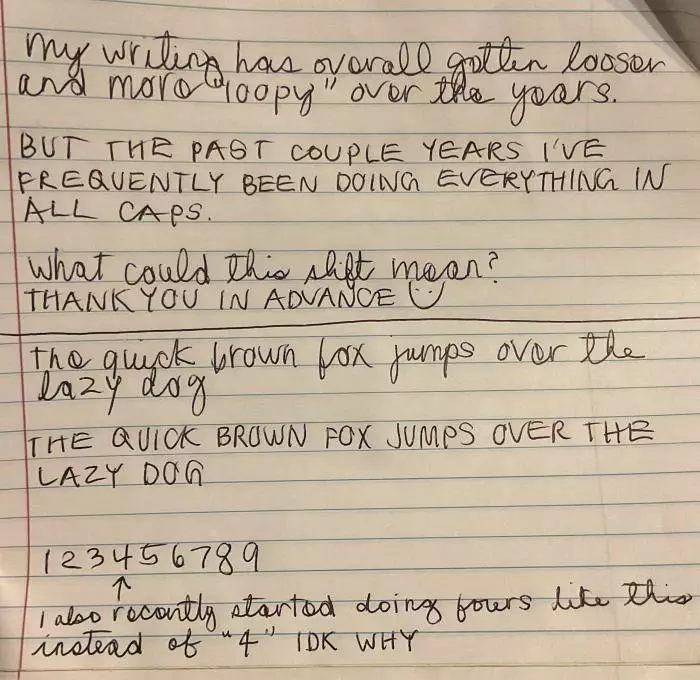 my writing has overall gotten looser
and more "loopy" over the years.
BUT THE PAST COUPLE YEARS I'VE
FREQUENTLY BEEN DOING EVERYTHING IN
ALL CAPS.
What could this shift mean?
THANK YOU IN ADVANCE :)
the quick brown fox jumps over the
lazy dog
THE QUICK BROWN FOX JUMPS OVER THE
LAZY DOG
123456789
↑
I also recently started doing fours like this
instead of "4" IDK WHY